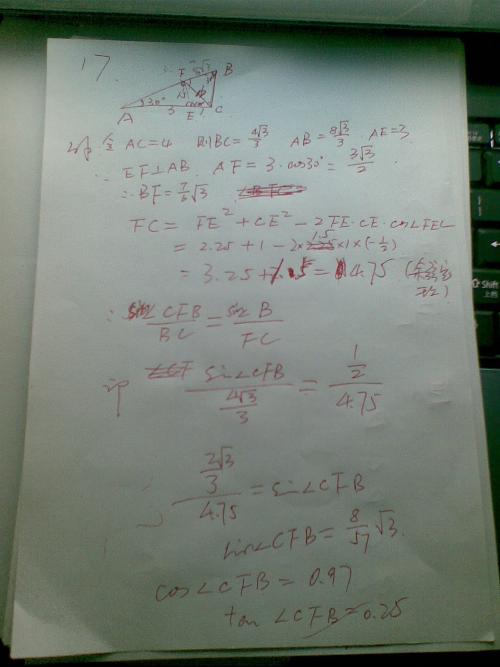 17.
F
7/6√3
B
A
30°
3
E
1
C
AC=4 则BC=4√3/3 AB=8√3/3 AE=3
∵ EF⊥AB. AF=3·cos30°=3√3/2
∴BF=7/6√3
FC= FE²+CE²-2FE·CE·cos∠FEC
=2.25+1-2×1.5×1×(-1/2)
=3.25+1.5=4.75
∴ sin∠CFB/BC=sinB/FC
即 sin∠CFB/(4√3/3)=(1/2)/4.75
(2√3/3)/4.75=sin∠CFB
sin∠CFB=8/57√3.
cos∠CFB=0.97
tan∠CFB=0.25
Shift
上档